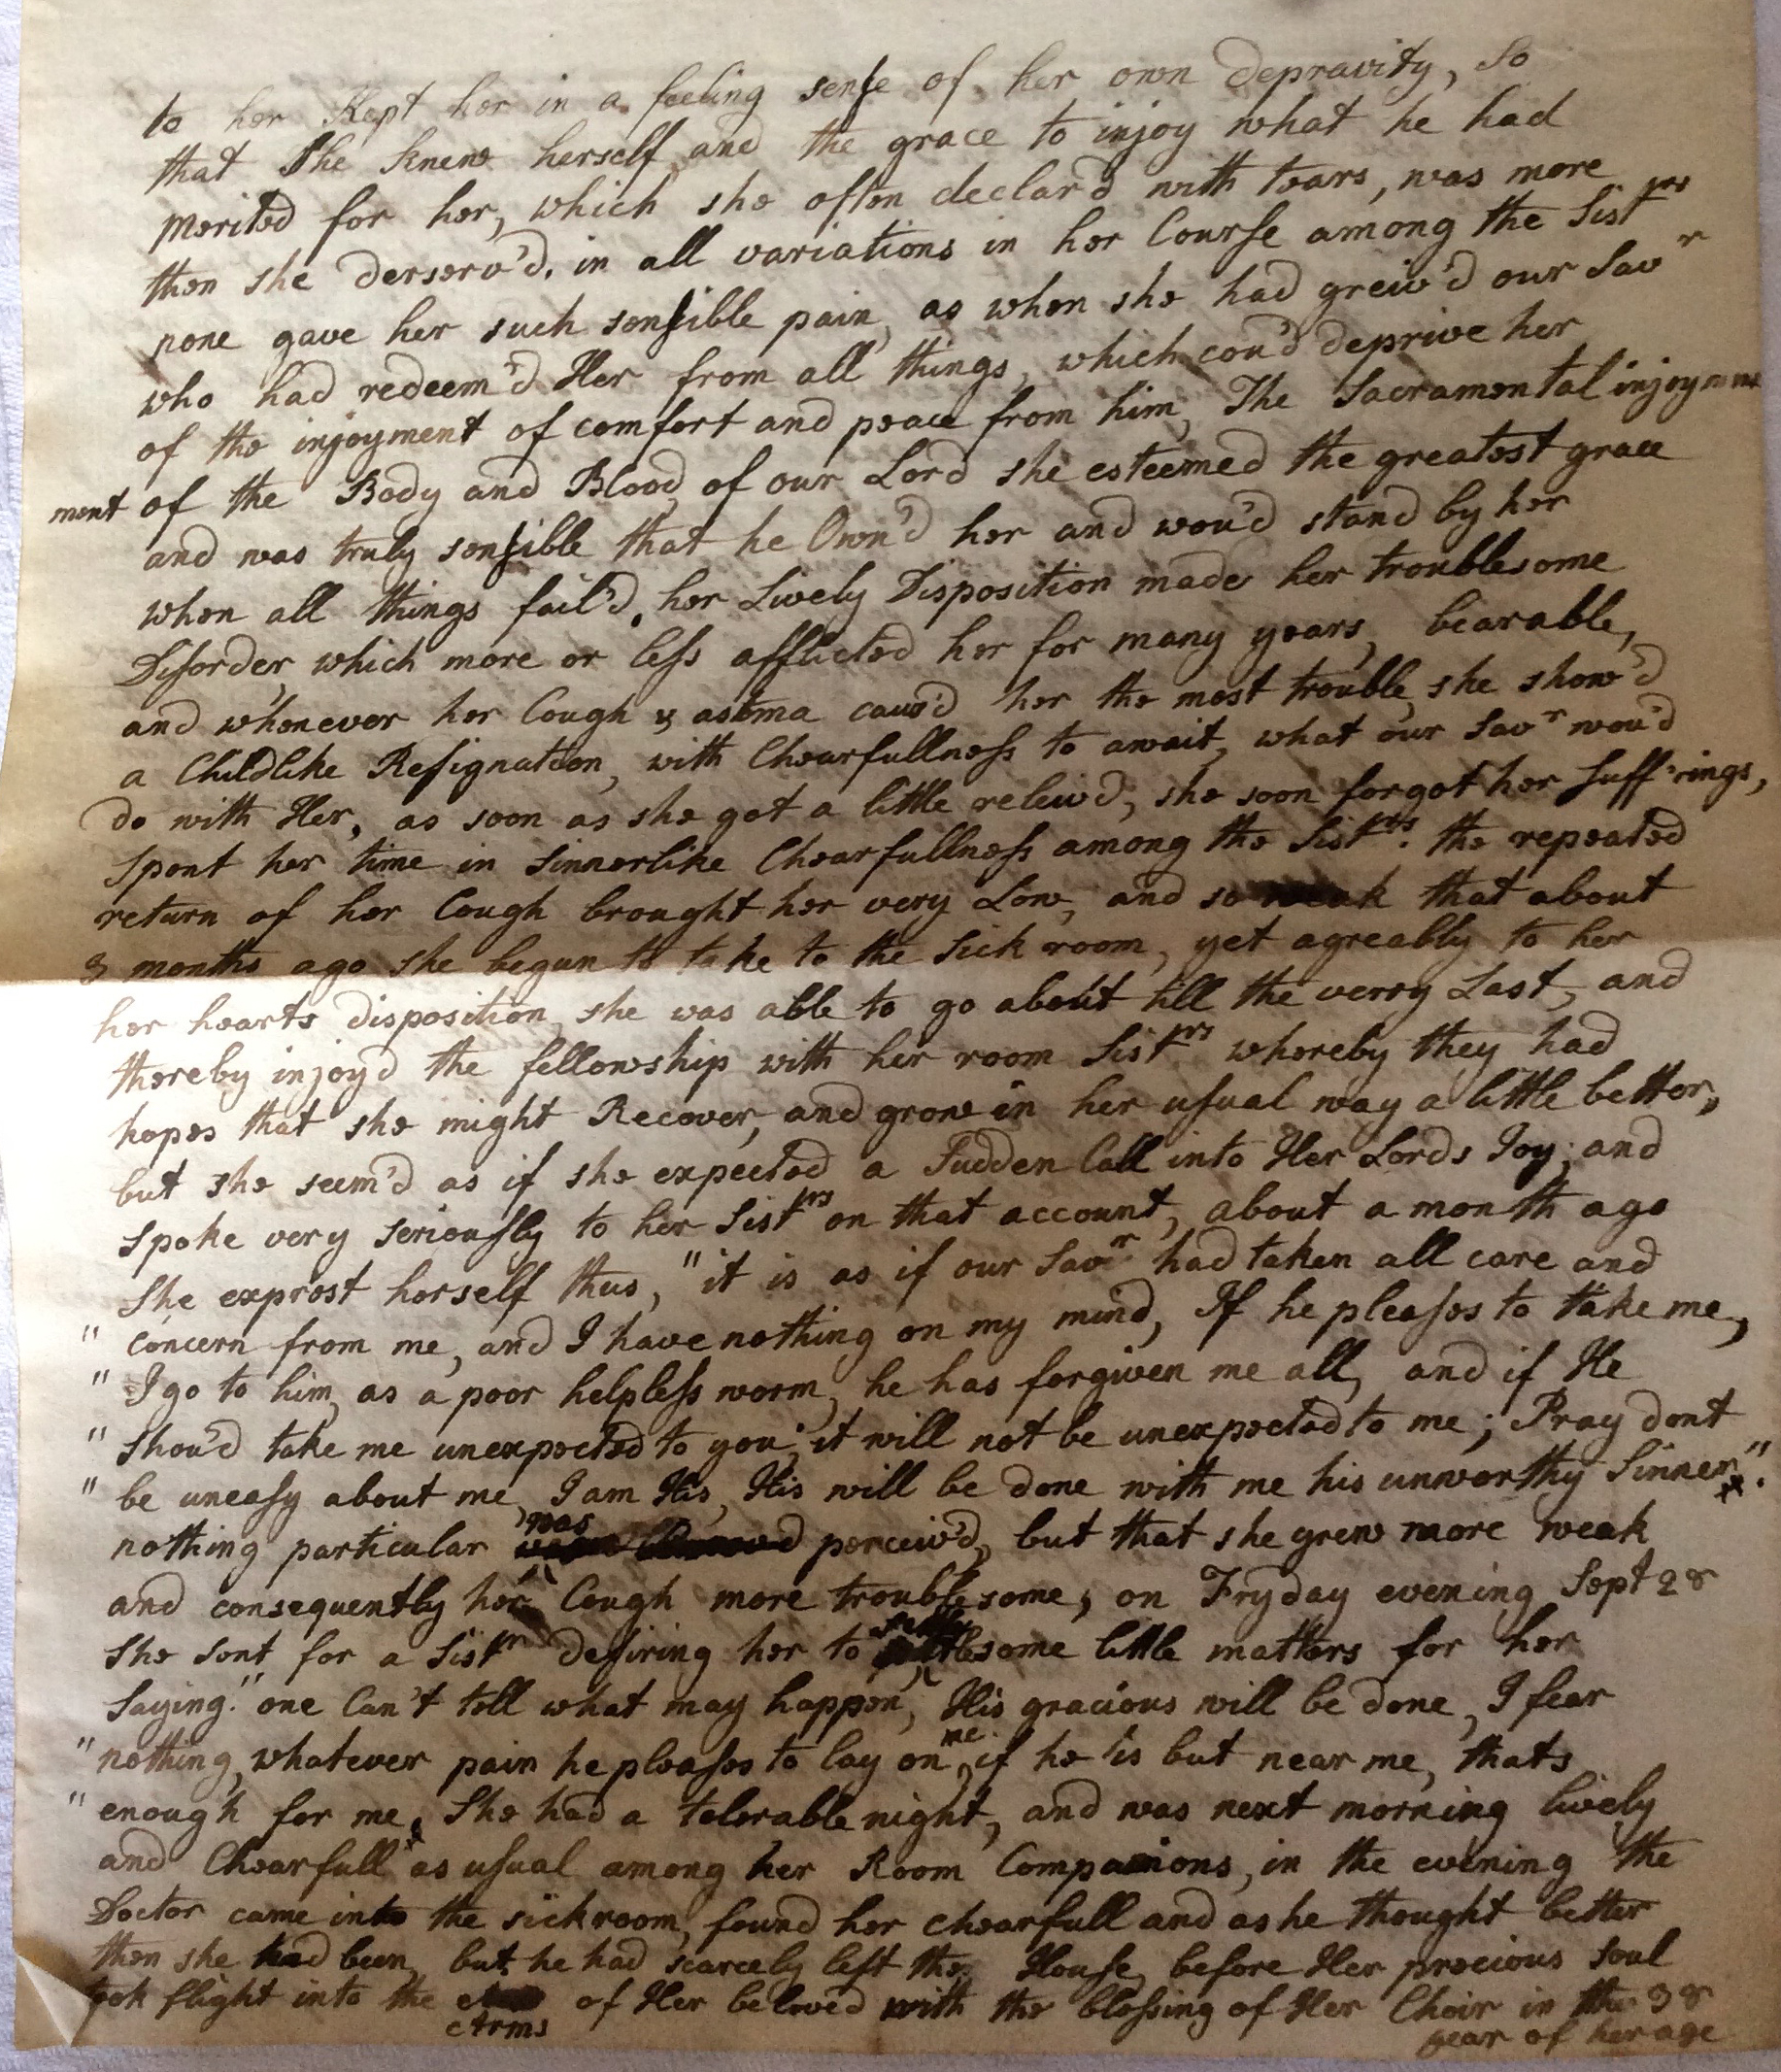 to her Kept her in a feeling sense of her own Depravity, So
that She knew herself, and the grace to injoy what he had
Merited for her, which she often declar'd with tears, was more
then she derserv'd. in all variations in her Course among the Sistrs
none gave her such sensible pain, as when she had greiv'd our Savr
who had redeem'd Her from all things, which cou'd deprive her
of the injoyment of comfort and peace from him, The Sacramental injoy
ment of the Body and Blood of our Lord she esteemed the greatest grace
and was truly sensible that he Own'd her and wou'd stand by her
when all things fail'd. her Lively Disposition made her troublesome
Disorder, which more or less afflicted her for many years, bearable,
and whenever her Cough & astma caus'd her the most trouble, she show'd
a Childlike Resignation, with Chearfullness to await, what our Savr wou'd
do with Her, as soon as she got a little releiv'd, she soon forgot her Suff'rings,
Spent her time in Sinnerlike Chearfullness among the Sistrs. the repeated
return of her Cough brought her very Low, and so weak that about
3 months ago she begun to take to the Sick room, yet agreably to her
her hearts disposition, she was able to go about till the verry Last, and
thereby injoy'd the fellowship with her room Sistrs whereby they had
hopes that she might Recover, and grow in her usual way a little better,
but she seem'd as if she expected a Sudden Call into Her Lords Joy, and
Spoke very Seriously to her Sistrs on that account, about a month ago
She exprest herself thus, "it is as if our Savr had taken all care and
" concern from me, and I have nothing on my mind, If he pleases to take me,
" I go to him, as a poor helpless worm, he has forgiven me all, and if He
" Shou'd take me unexpected to you, it will not be unexpected to me; Pray dont
" be uneasy about me, I am His, His will be done with me his unworthy Sinner".
nothing particular was perceiv'd, but that she grew more weak
and consequently her Cough more troublesome, on Fryday evening Sept 28
She sent for a Sistr desiring her to settle some little matters for her
Saying." one Can't tell what may happen, His gracious will be done, I fear
" nothing, whatever pain he pleases to lay on me, if he is but near me, thats
" enough for me, She had a tolerable night, and was next morning lively
and Chearfull as usual among her Room Companions, in the evening the
Doctor came into the sickroom, found her chearfull and as he thought better
then she had been, but he had scarcely left the House, before Her precious Soul
took flight into the Arms of Her beloved with the blessing of Her Choir in the 38
year of her age